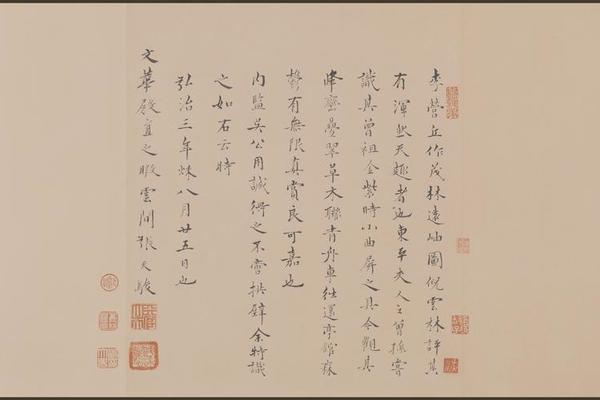 李營丘作茂林遠岫圖倪雲林評其
有渾然天趣者也東平夫人之曾孫寄
識其曾祖金紫時小曲屏之具今觀其
峰巒疊翠草木聯青舟車往還亭館森
鬱有無限真賞良可嘉也
內監吳公用誠得之不啻拱璧余特識
之如右云時
弘治三年秋八月廿五日也
文華殿直之暇雲間張天駿